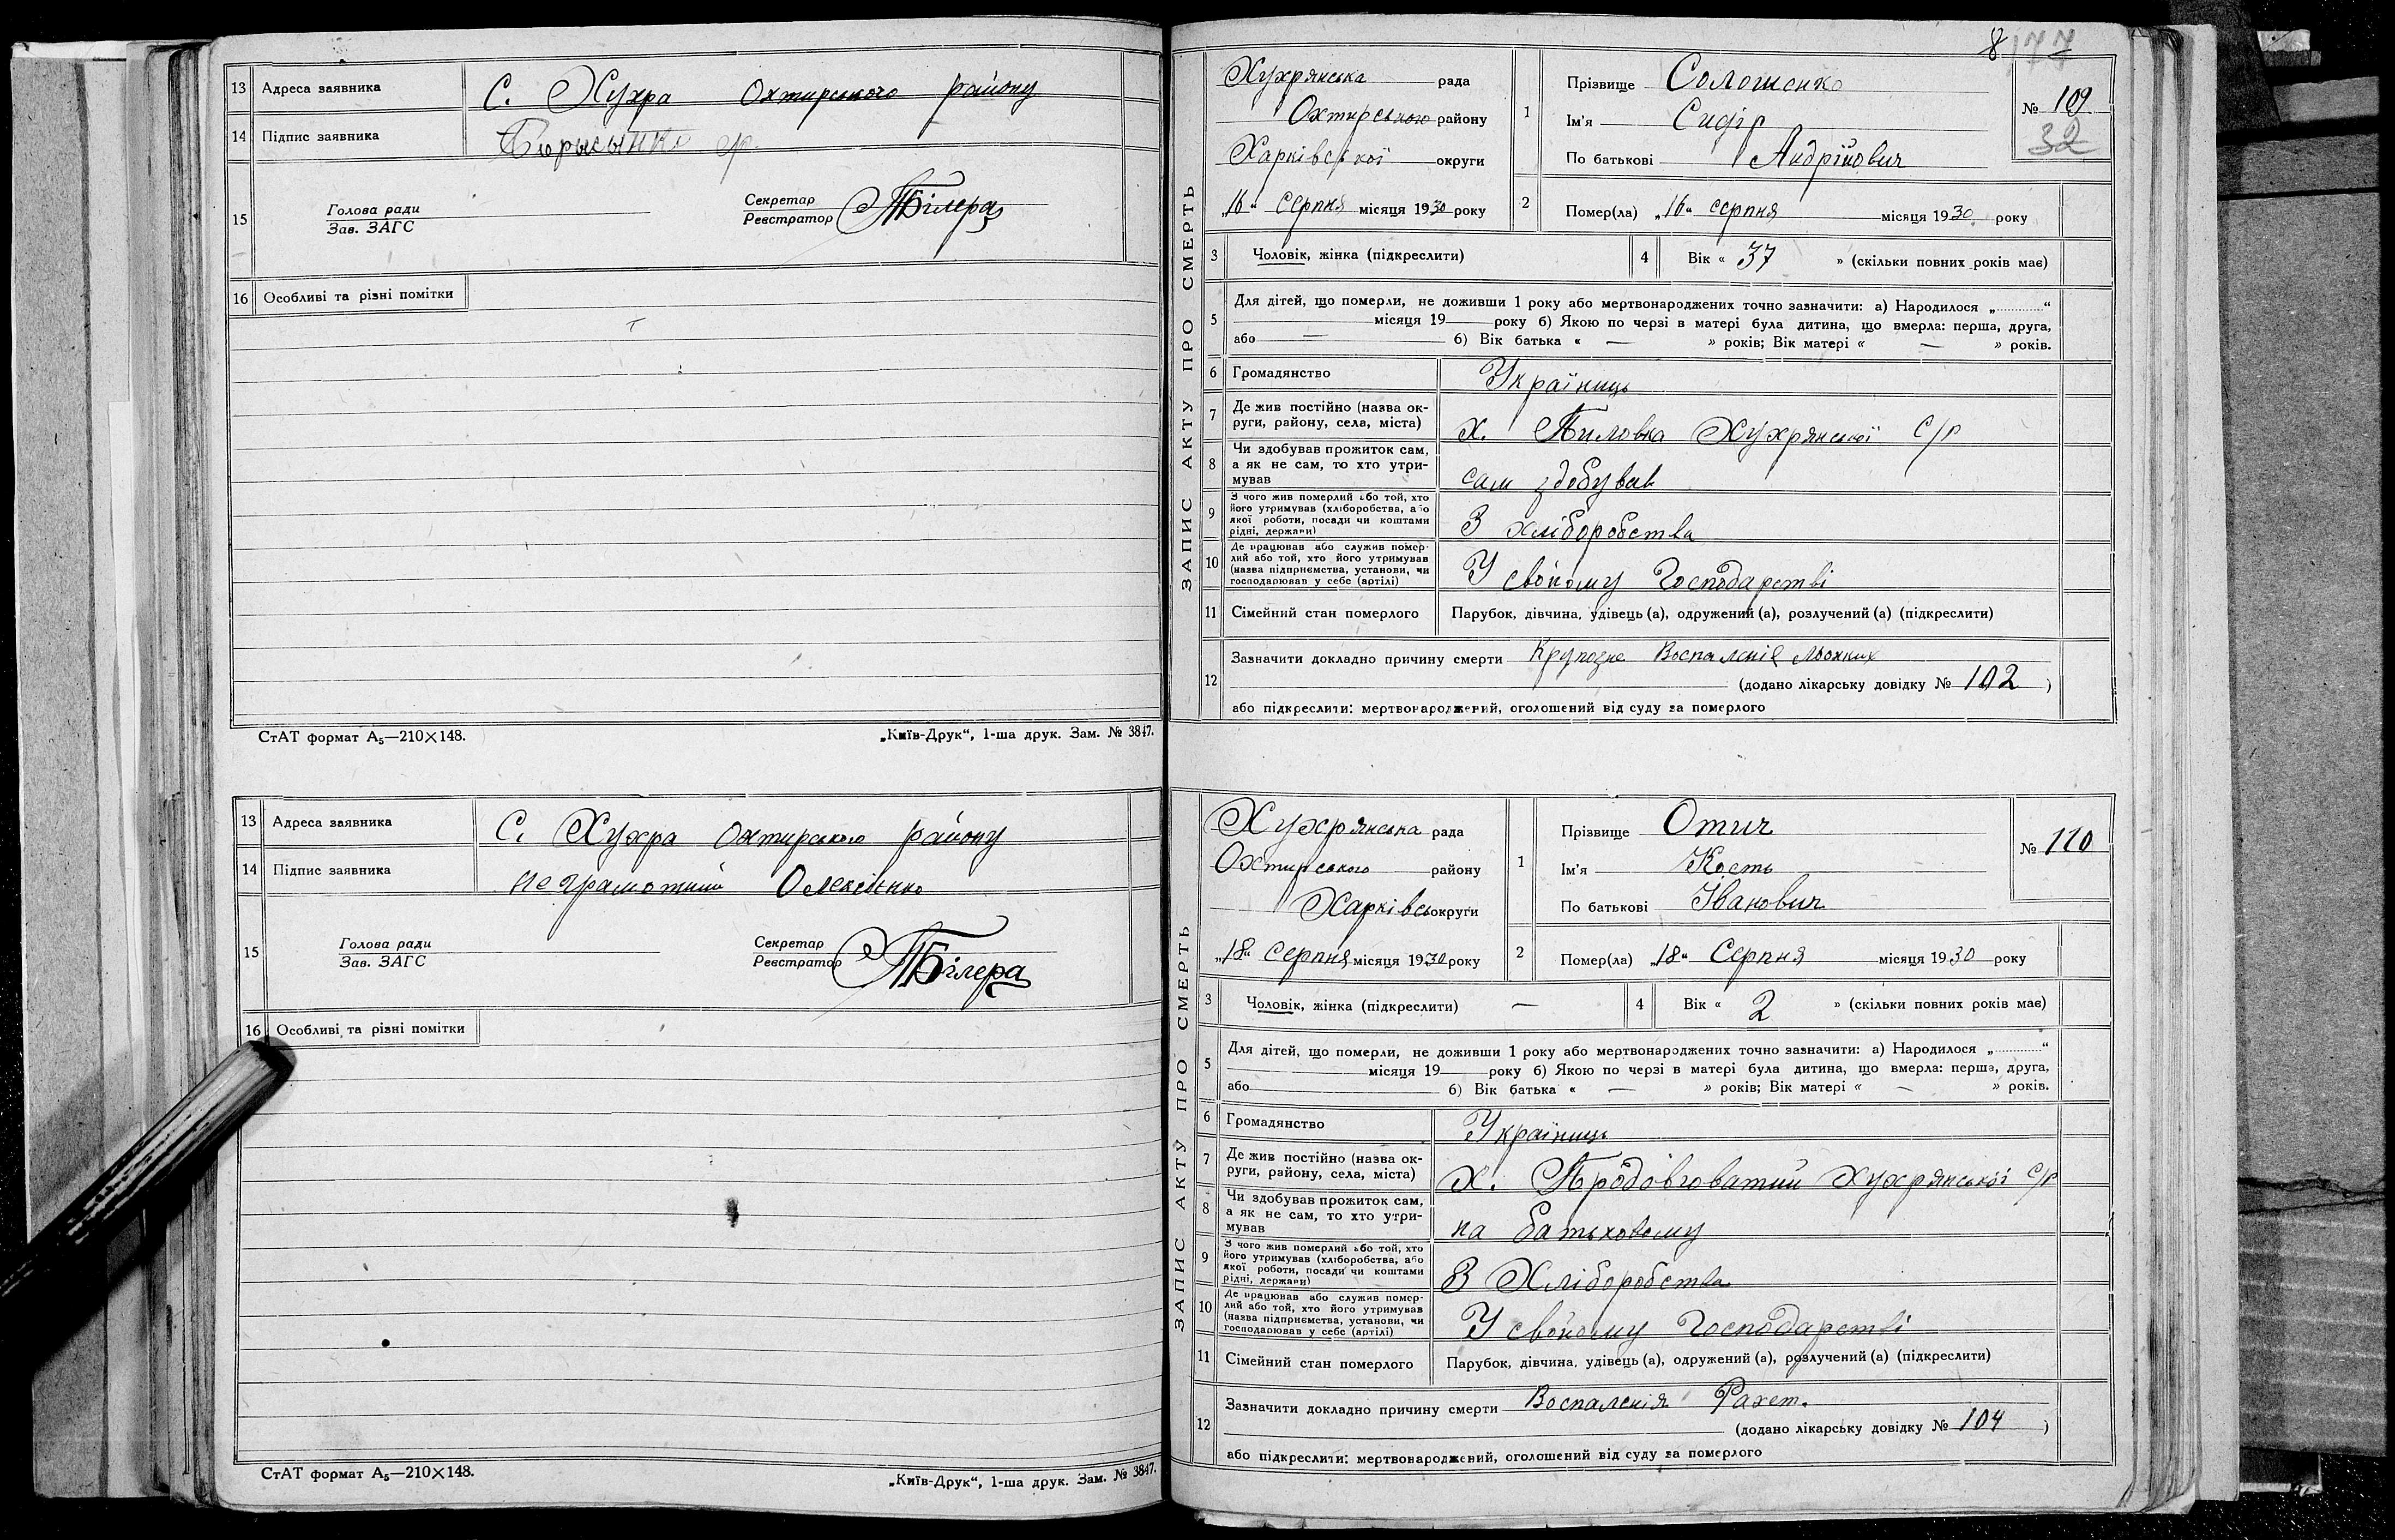 13 Адреса заявника С. Хухра Охтирського району
14 Підпис заявника
15 Голова ради
Зав. ЗАГС
Секретар
Реєстратор ТБілера
16 Особливі та різні помітки
СтАТ формат А₅—210×148.
„Київ-Друк“, 1-ша друк. Зам. № 3847.
13 Адреса заявника С. Хухра Охтирського району
14 Підпис заявника неграмотний Олексієнко
15 Голова ради
Зав. ЗАГС
Секретар
Реєстратор ТБілера
16 Особливі та різні помітки
СтАТ формат А₅—210×148.
„Київ-Друк“, 1-ша друк. Зам. № 3847.
8 177
ЗАПИС АКТУ ПРО СМЕРТЬ
Хухрянська рада
Охтирського району
Харківської округи
„16“ серпня місяця 1930 року
1 Прізвище Солошенко
Ім'я Сидір
По батькові Андрійович
№ 109
32
2 Помер(ла) „16“ серпня місяця 1930 року
3 Чоловік, жінка (підкреслити)
4 Вік « 37 » (скільки повних років має)
5 Для дітей, що померли, не доживши 1 року або мертвонароджених точно зазначити: а) Народилося „............“
місяця 19 року б) Якою по черзі в матері була дитина, що вмерла: перша, друга,
або — б) Вік батька « — » років; Вік матері « — » років.
6 Громадянство Українець
7 Де жив постійно (назва ок-
руги, району, села, міста) х. Пиловка Хухрянської С/р
8 Чи здобував прожиток сам,
а як не сам, то хто утри-
мував сам здобував
9 З чого жив померлий або той, хто
його утримував (хліборобства, або
якої роботи, посади чи коштами
рідні, держави) З хліборобства
10 Де працював або служив помер-
лий або той, хто його утримував
(назва підприємства, установи, чи
господарював у себе (артілі) У свойому Господарстві
11 Сімейний стан померлого Парубок, дівчина, удівець (а), одружений (а), розлучений (а) (підкреслити)
12 Зазначити докладно причину смерти Крупозне Воспаленіє льохких
(додано лікарську довідку № 102 )
або підкреслити: мертвонароджений, оголошений від суду за померлого
ЗАПИС АКТУ ПРО СМЕРТЬ
Хухрянська рада
Охтирського району
Харківсь округи
„18“ серпня місяця 1930 року
1 Прізвище Отич
Ім'я Кость
По батькові Іванович
№ 110
2 Помер(ла) „18“ Серпня місяця 1930 року
3 Чоловік, жінка (підкреслити) —
4 Вік « 2 » (скільки повних років має)
5 Для дітей, що померли, не доживши 1 року або мертвонароджених точно зазначити: а) Народилося „............“
місяця 19 року б) Якою по черзі в матері була дитина, що вмерла: перша, друга,
або б) Вік батька « — » років; Вік матері « — » років.
6 Громадянство Українець
7 Де жив постійно (назва ок-
руги, району, села, міста) Х. Продовговатий Хухрянської С/р
8 Чи здобував прожиток сам,
а як не сам, то хто утри-
мував на батьковому
9 З чого жив померлий або той, хто
його утримував (хліборобства, або
якої роботи, посади чи коштами
рідні, держави) З Хліборобства
10 Де працював або служив помер-
лий або той, хто його утримував
(назва підприємства, установи, чи
господарював у себе (артілі) У свойому Господарстві
11 Сімейний стан померлого Парубок, дівчина, удівець (а), одружений (а), розлучений (а) (підкреслити)
12 Зазначити докладно причину смерти Воспаленія Рахет.
(додано лікарську довідку № 104 )
або підкреслити: мертвонароджений, оголошений від суду за померлого